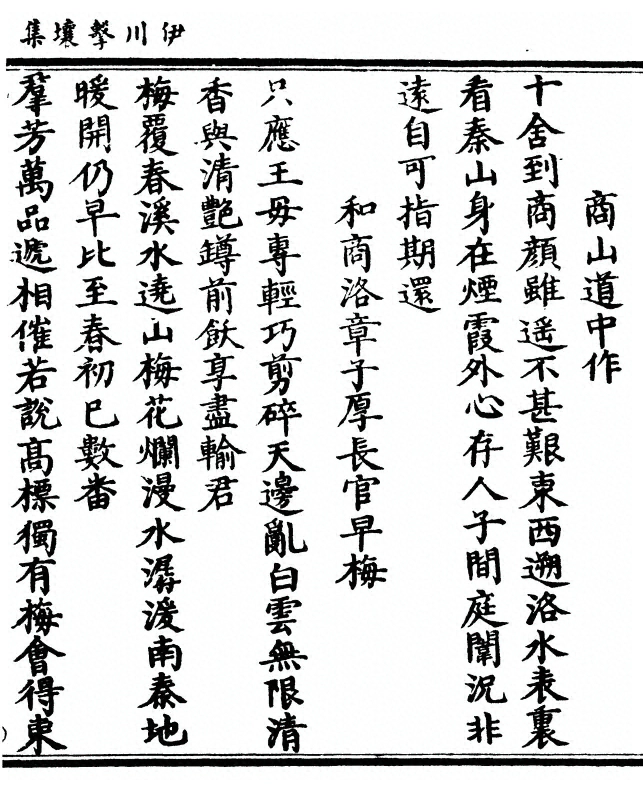 伊川擊壤集
商山道中作
十舍到商顏雖遥不甚艱東西遡洛水表裏
看秦山身在煙霞外心存人子間庭闈況非
遠自可指期還
和商洛章子厚長官早梅
只應王母專輕巧剪碎天邊亂白雲無限清
香與清艷罇前飲享盡輸君
梅覆春溪水遶山梅花爛漫水潺湲南秦地
暖開仍早比至春初已數番
羣芳萬品遞相催若說高標獨有梅會得東